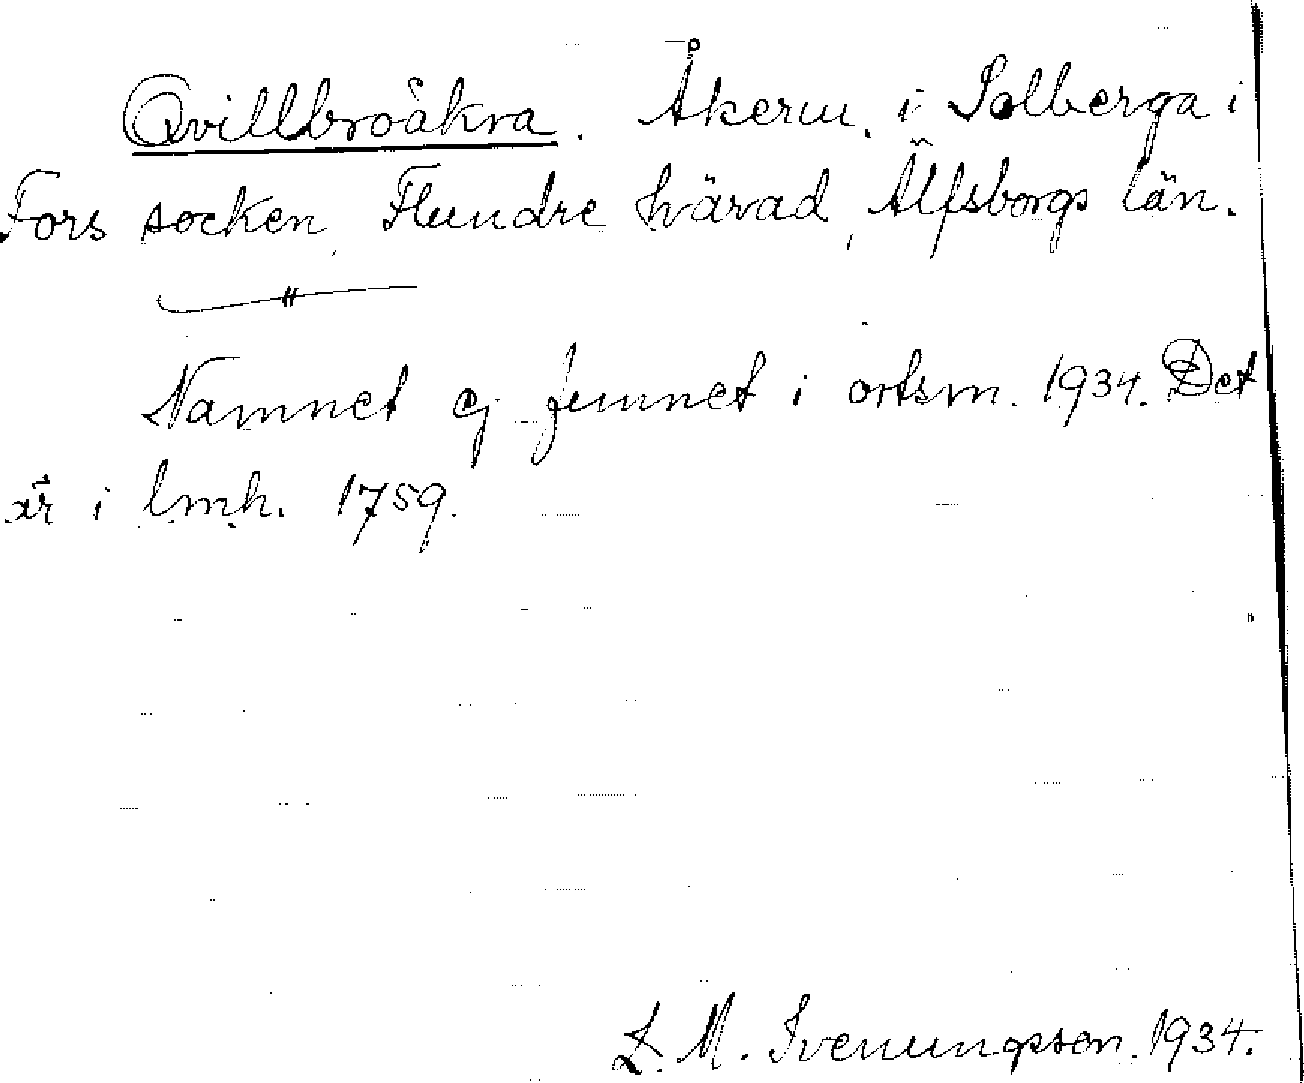 Qvillbroåkra. Åkerm. i Solberga i
Fors socken, Flundre härad, Älfsborgs län.
Namnet ej funnet i ortsm. 1934. Det
är i lmh. 1759.
L. M. Svenungsson. 1934.